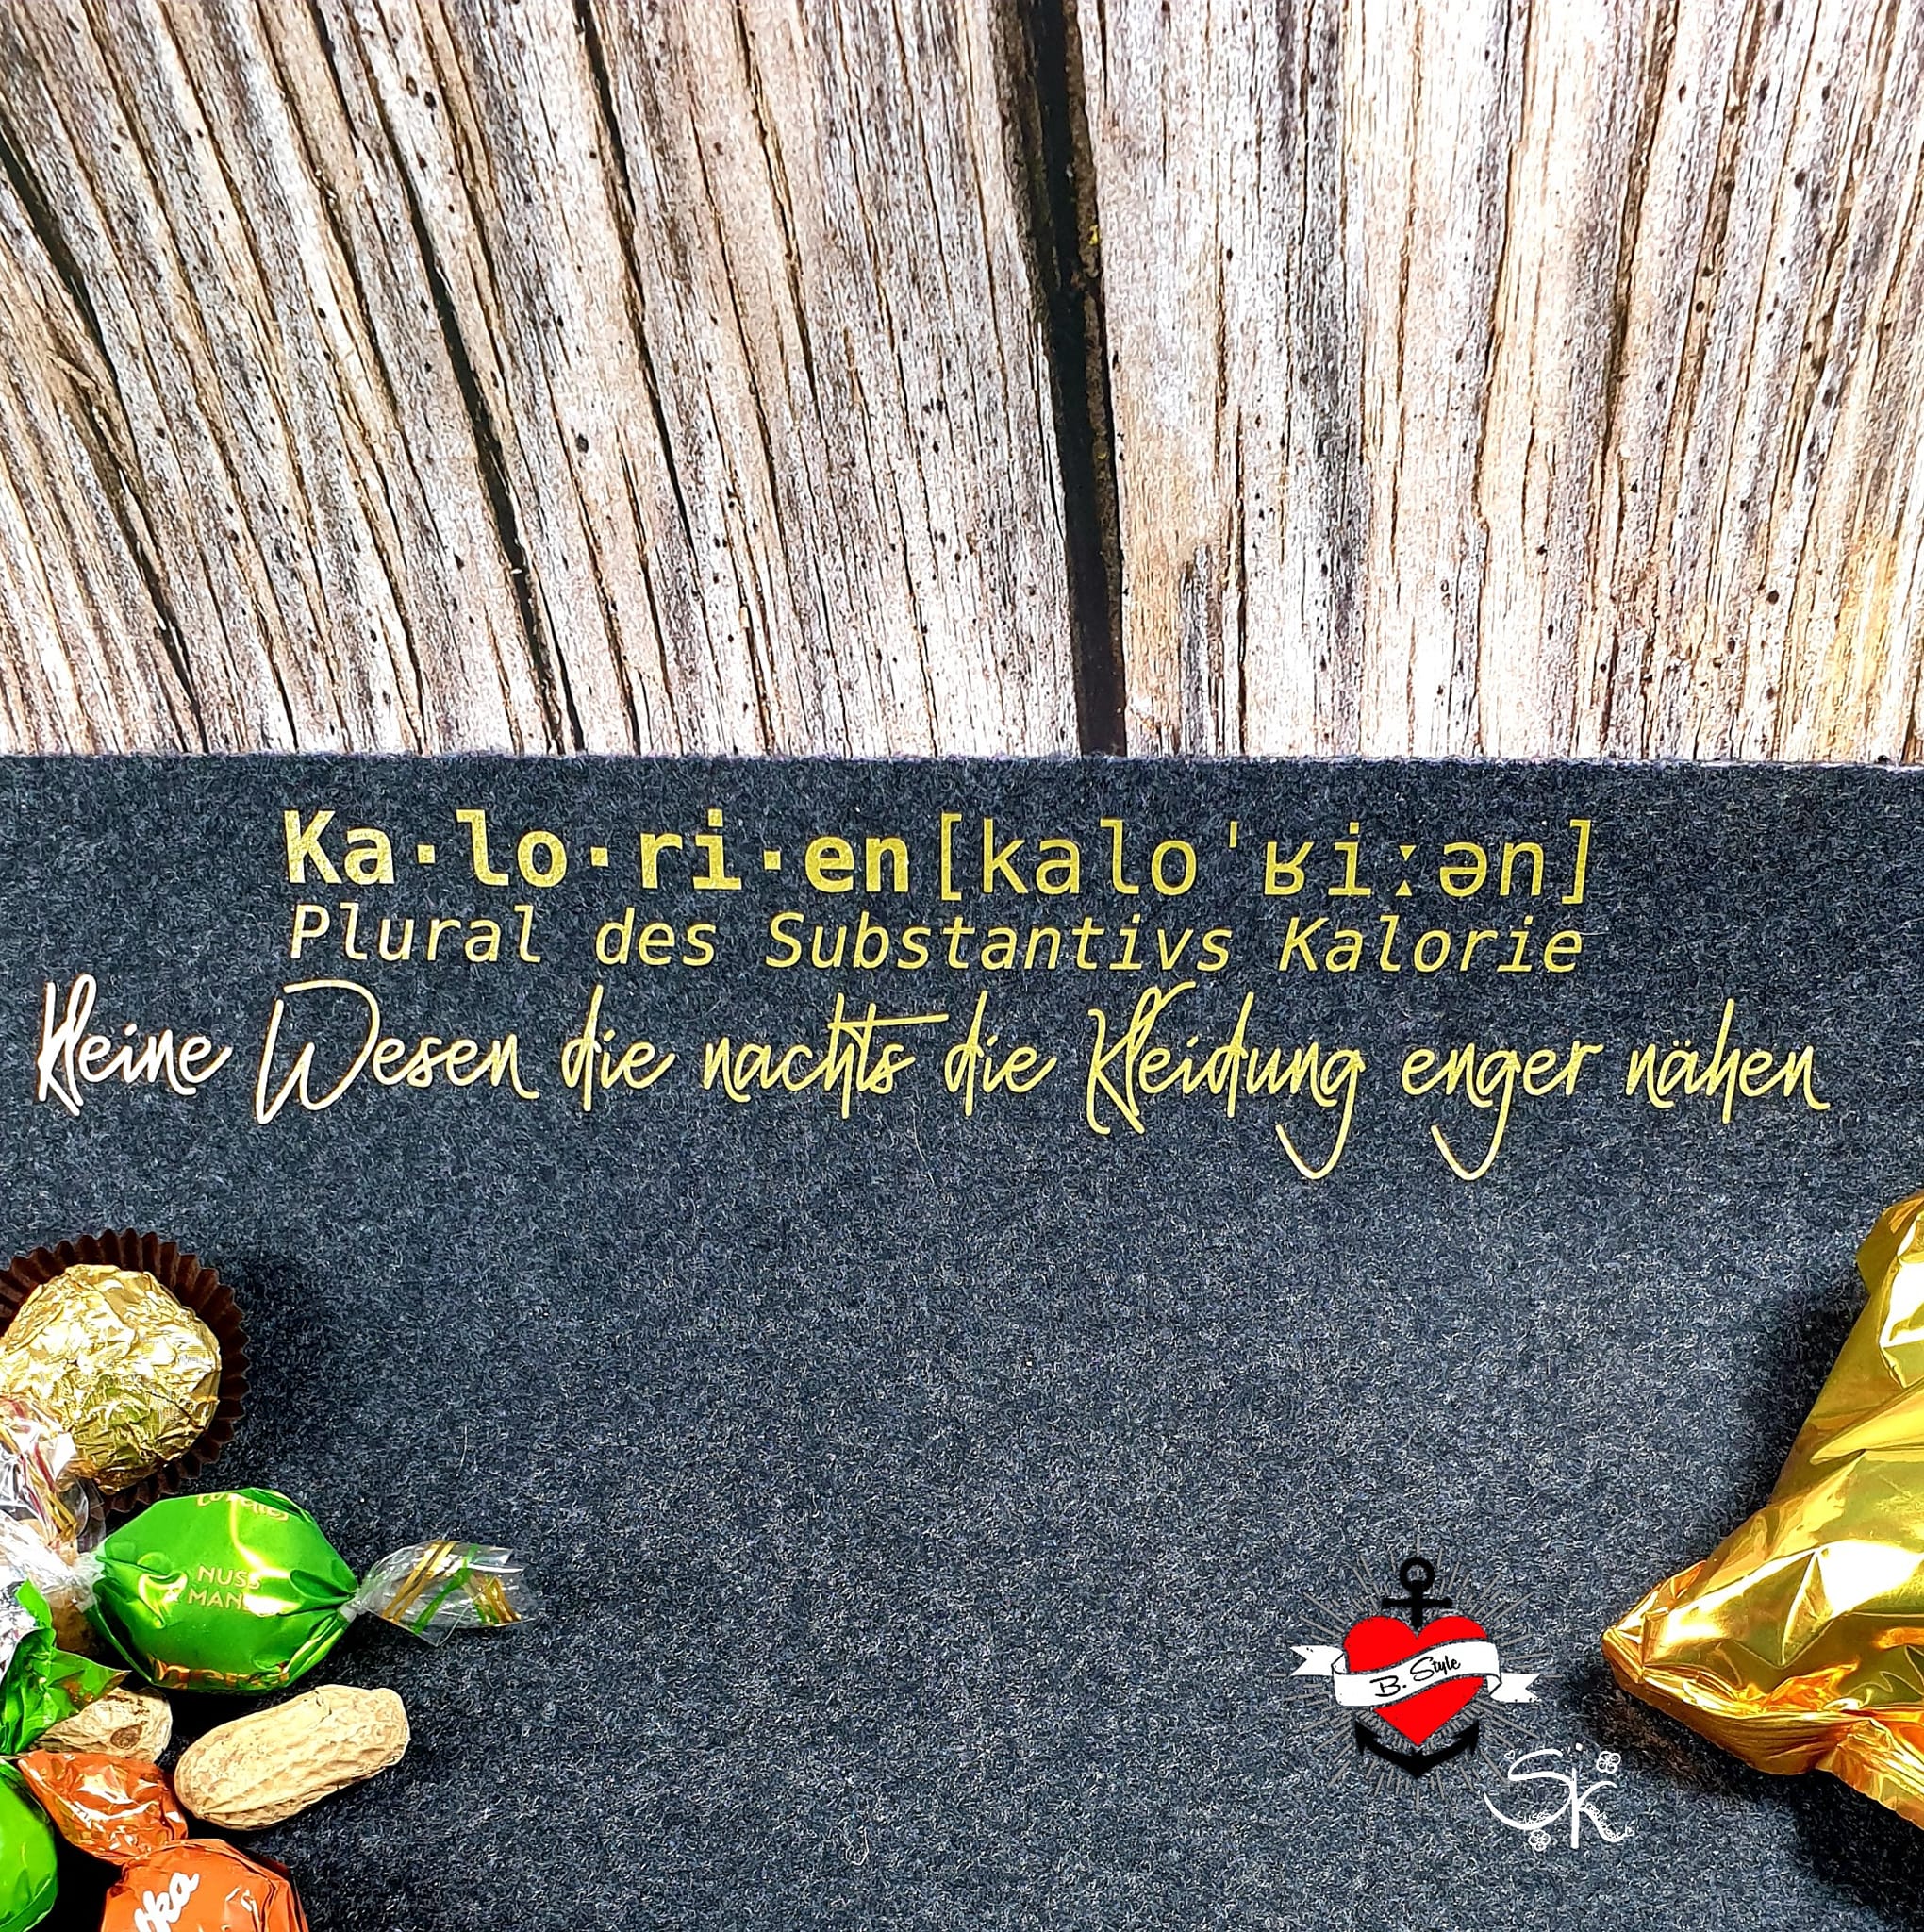 Ka·lo·ri·en[kaloˈʁiːən]
Plural des Substantivs Kalorie
kleine Wesen die nachts die Kleidung enger nähen
NUSS
B. Style
SK